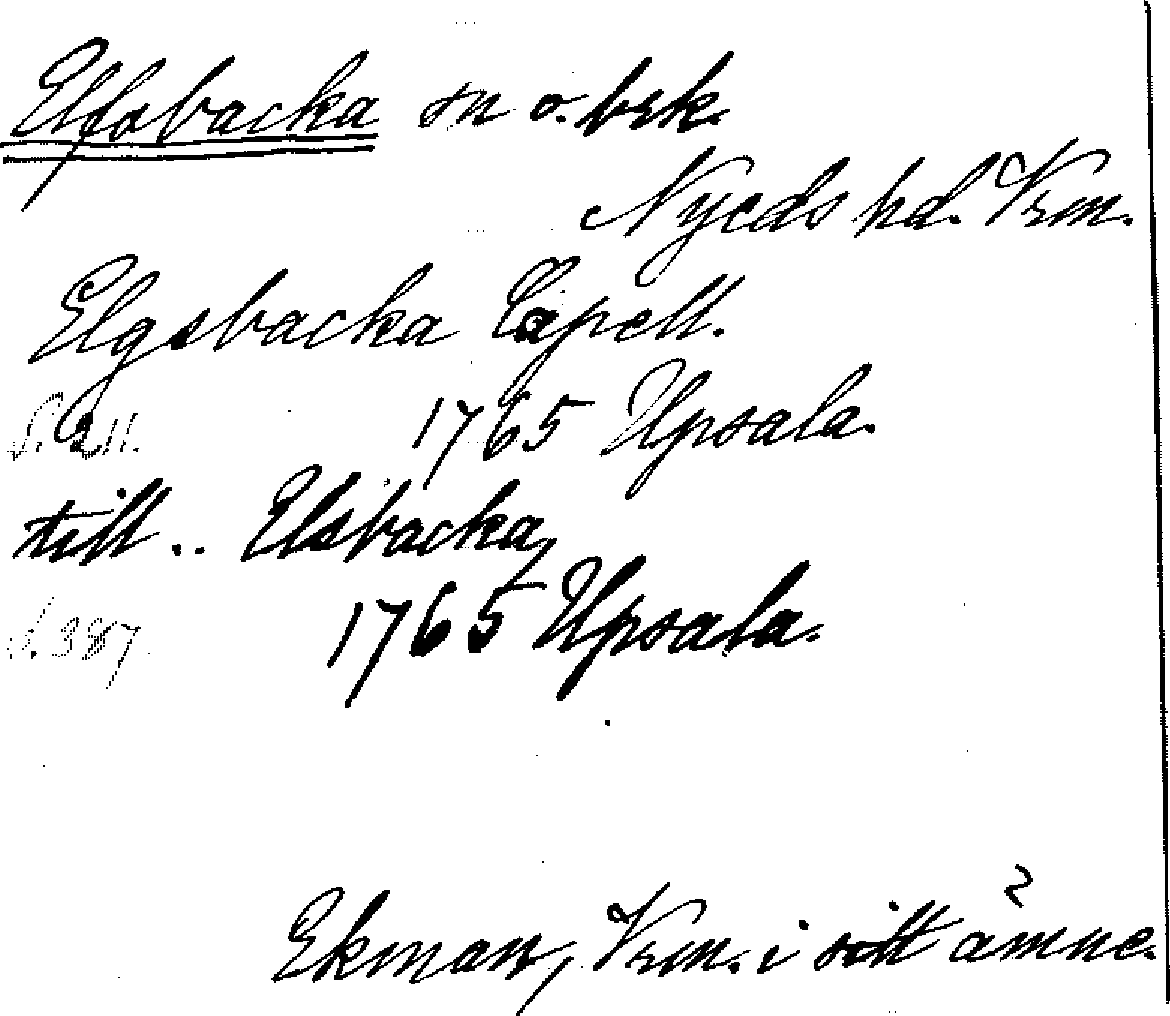 Elfsbacka sn o. brk.
Nyeds hd. Vrm.
Elgsbacka Capell.
S. 211. 1765 Upsala.
till .. Elsbacka,
S. 387. 1765 Upsala.
Ekman, Vrm. i sitt ämne.